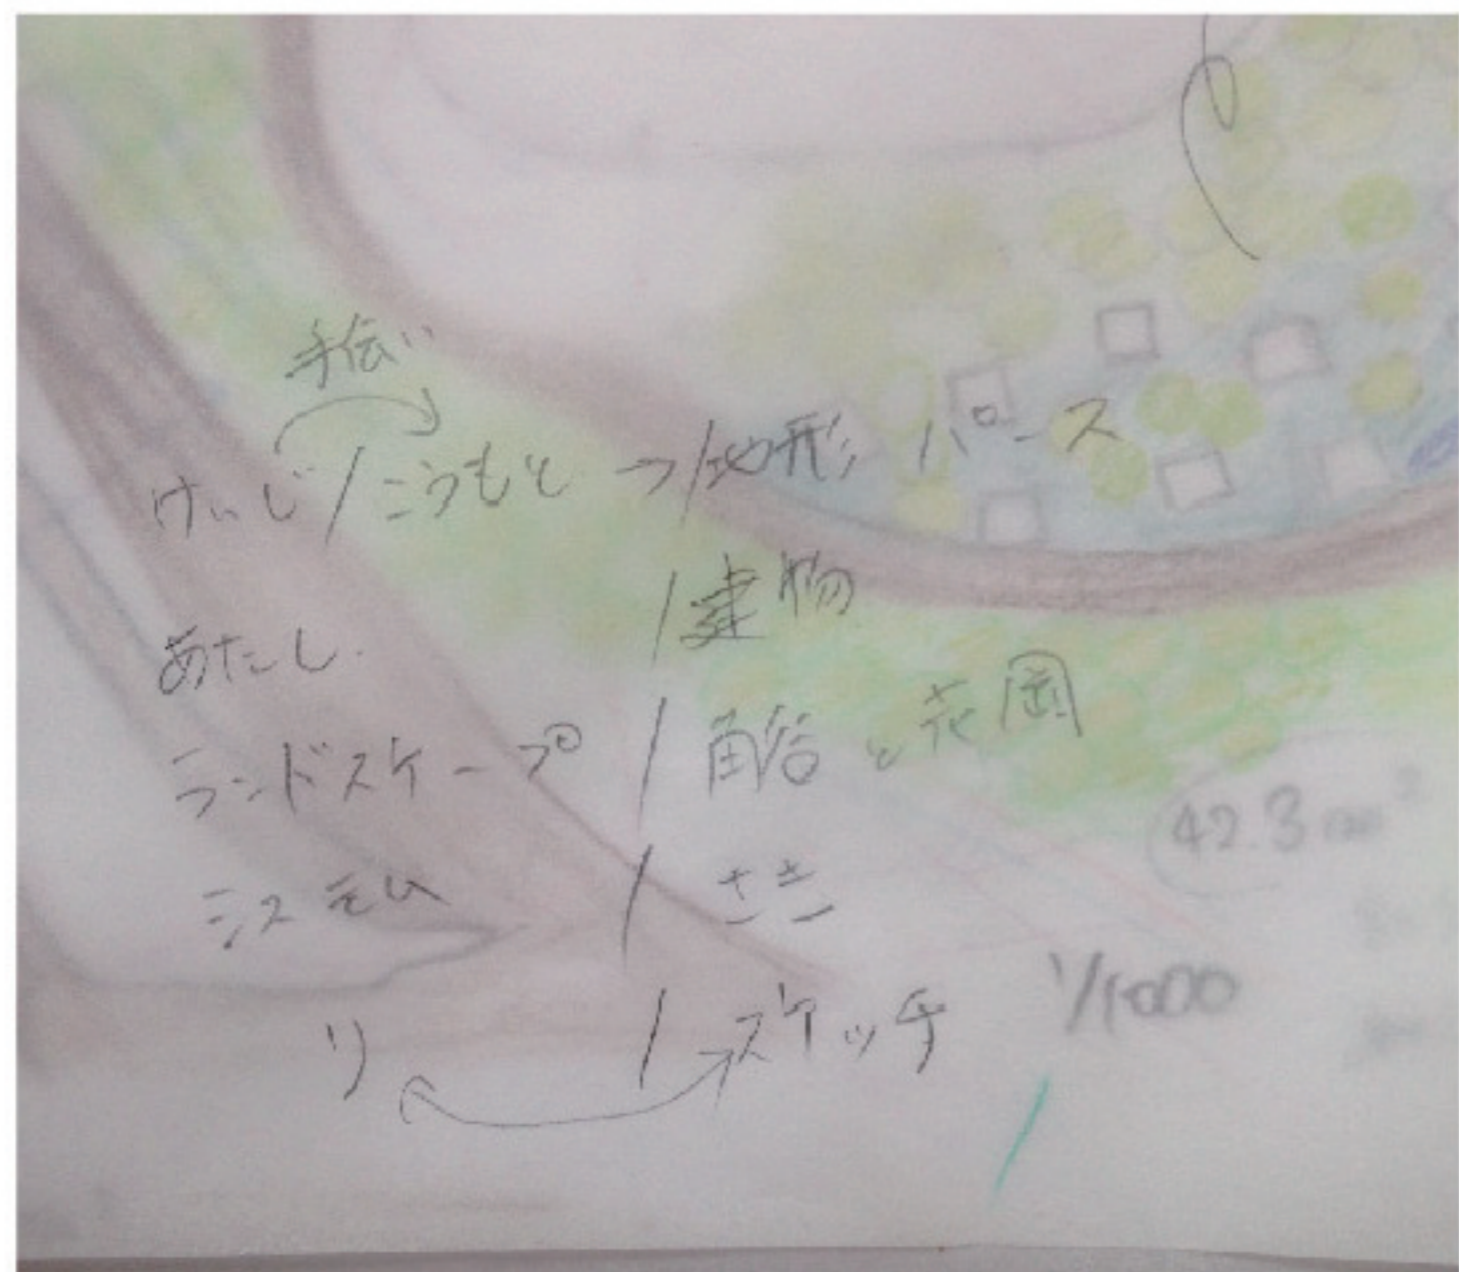 手伝い
けいじ/こうもと → /地形 パース
あたし /建物
ランドスケープ / 角谷と花岡
42.3
システム / さき
り / スケッチ 1/1000